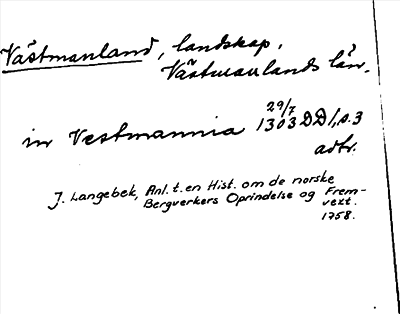 Västmanland, landskap.
Västmanlands län.
29/7
in Vestmannia 1303 DD 1, s. 3
adtr.
J. Langebek, Anl. t. en Hist. om de norske
Bergverkers Oprindelse og Frem-
vext.
1758.